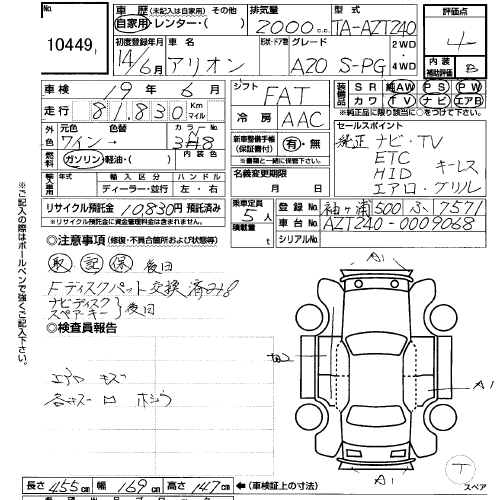 No.
10449
車歴 (未記入は自家用) その他
自家用・レンター・( )
排気量
2000 c.c.
型式
TA-AZT240
評価点
4
初度登録年月
14/6月
車名
アリオン
形状・ドア数
グレード
A20 S-PG
2WD・4WD
内装
補助評価
B
車検 19年 6月
走行 81,830 Km マイル
シフト FAT
装備品
SR 純AW PS PW
カワ TV ナビ エアB
※純正品に限り該当に○をつけて下さい。
外色 元色 色替
ワイン→
カラーNo.
3H8
冷房 AAC
燃料 ガソリン・軽油・( )
内装色
新車整備手帳
(保証書付)
有・無
※書類と一緒に保管して下さい。
セールスポイント
純正ナビ・TV
ETC
HID キーレス
エアロ・グリル
輸入車 年式 輸入区分 ハンドル
ディーラー・並行 左・右
名義変更期限
月 日
リサイクル預託金 10,830円 預託済み
※リサイクル預託金に資金管理料金は含まれません。
乗車定員 5人
積載量 t
登録No. 袖ヶ浦 500 ふ 7571
車台No. AZT240-0009068
シリアルNo.
◎注意事項 (修復・不具合箇所および状態等)
取 記 保 後日
Fディスクパット交換済み
ナビディスク
スペアーキー 後日
◎検査員報告
エアロ キズ
A1
A1
A1
スペア
長さ 455cm 幅 169cm 高さ 147cm ←(車検証上の寸法)
※ご記入の際はボールペンで強くご記入下さい。